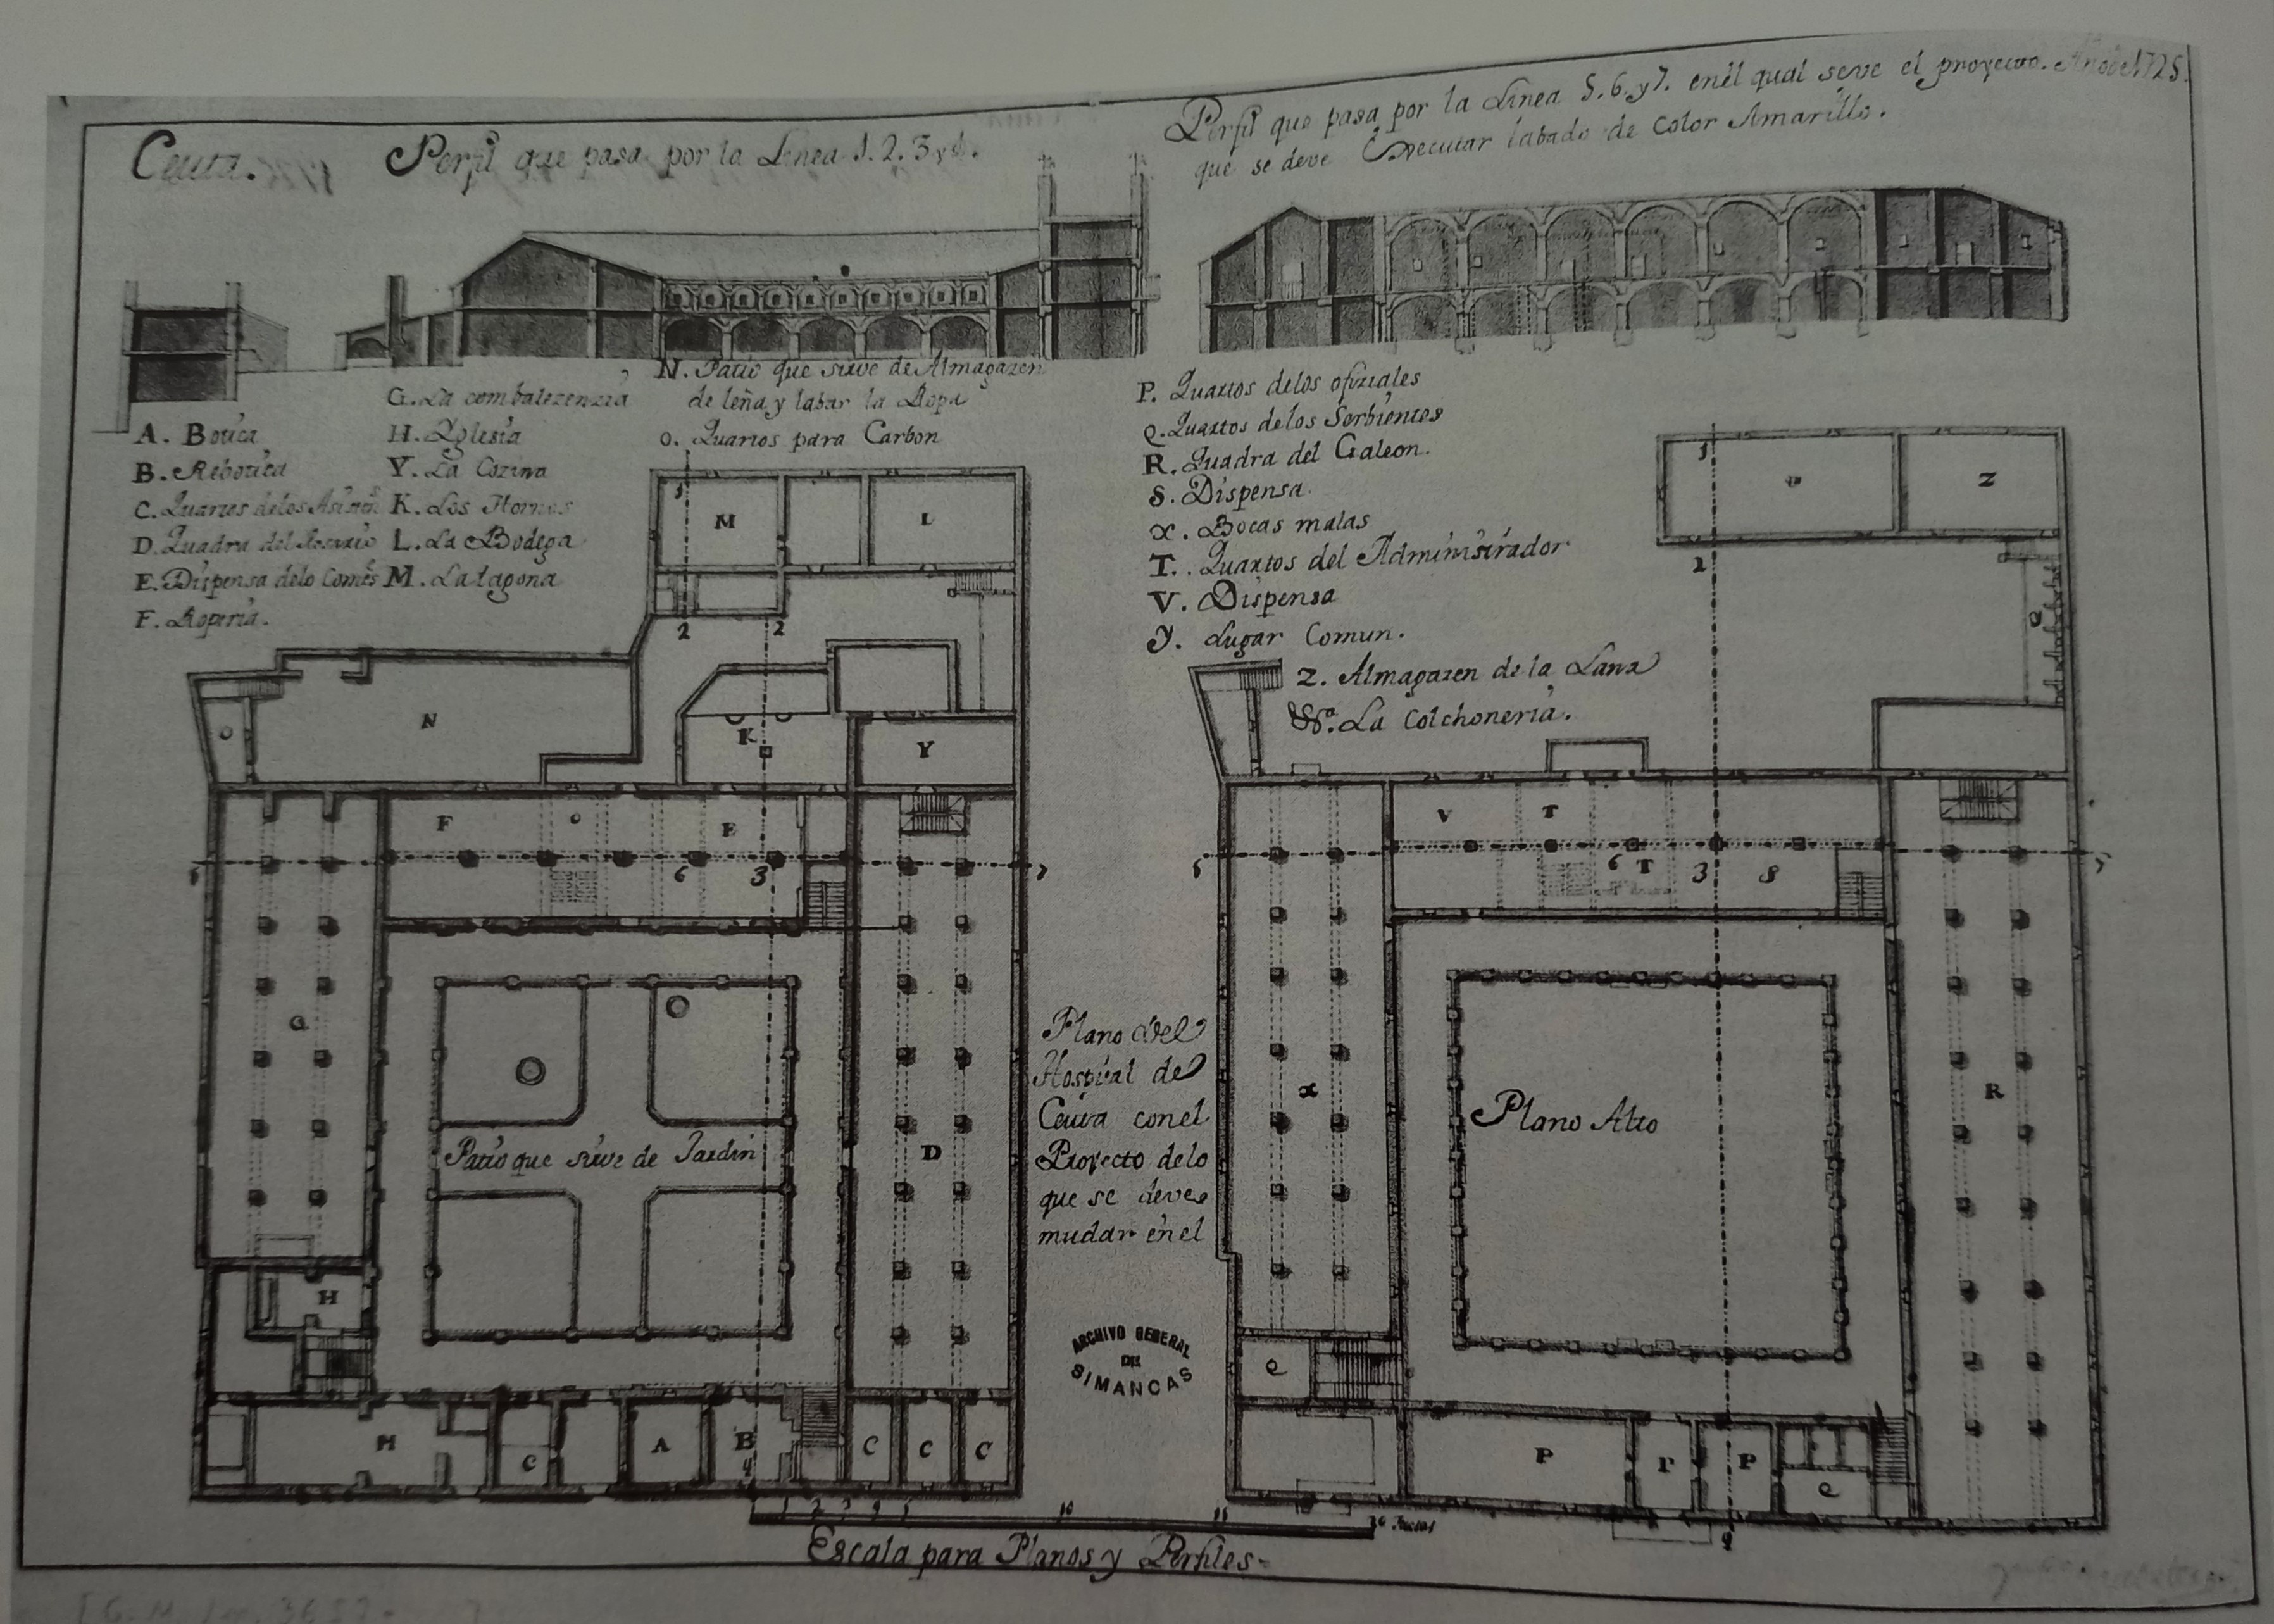 Ceuta.
Perfil que pasa por la Linea 1. 2. 3 y 4.
Perfil que pasa por la Linea 5. 6. y 7. en él qual seve el proyecto. Año de 1725.
que se deve Executar labado de Color Amarillo.
A. Botica
B. Rebotica
C. Quartos delos
D. Quadra del Rosario
E. Dispensa delo Comes
F. Roperia.
G. La combalezenzia
H. Yglesia
Y. La Cozina
K. Los Hornos
L. La Bodega
M. La tagona
N. Patio que sirve de Almagazen
de leña y labar la Ropa
o. Quartos para Carbon
P. Quartos delos ofiziales
Q. Quartos delos Serbientes
R. Quadra del Galeon.
S. Dispensa.
x. Bocas malas
T. Quartos del Administrador
V. Dispensa
y. Lugar Comun.
Z. Almagazen de la Lana
&a. La Colchoneria.
1
M
L
2
2
N
o
K
Y
F
o
E
5
6
3
7
G
D
Patio que sirve de Jardin
H
M
C
A
B
4
C
C
C
Plano del
Hospital de
Ceuta con el
Proyecto delo
que se deve
mudar en el
ARCHIVO GENERAL
DE
SIMANCAS
1
Z
2
V
T
5
6
T
3
S
7
x
Plano Alto
R
P
P
P
4
1 2 3 4 5 10 15 20
Escala para Planos y Perfiles